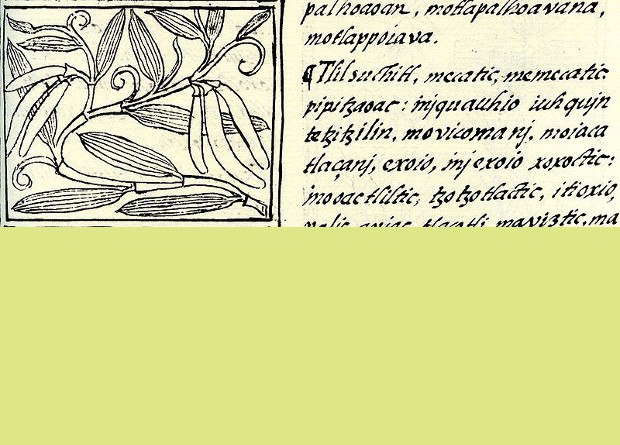 palhoaoan, motlapalhoavana,
motlappoiava.
¶ Tlilsuchitl, mecatic, memecatic
pipitzaoac: injquauhio iuhqujn
tetzitzilin, movicomanj, moiaca
tlaçanj, exoio, injexoio xoxoctic:
inooactliltic, tzotzotlactic,
maviztic, ma